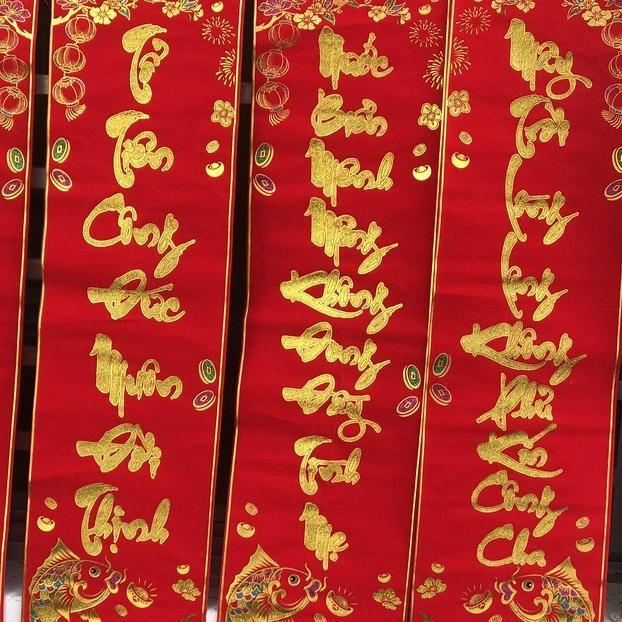 Tổ Tiên Công Đức Muôn Đời Thịnh
Nước Biển Mênh Mông Không Đong Đầy Tình Mẹ
Mây Trời Lồng Lộng Không Phủ Kín Công Cha